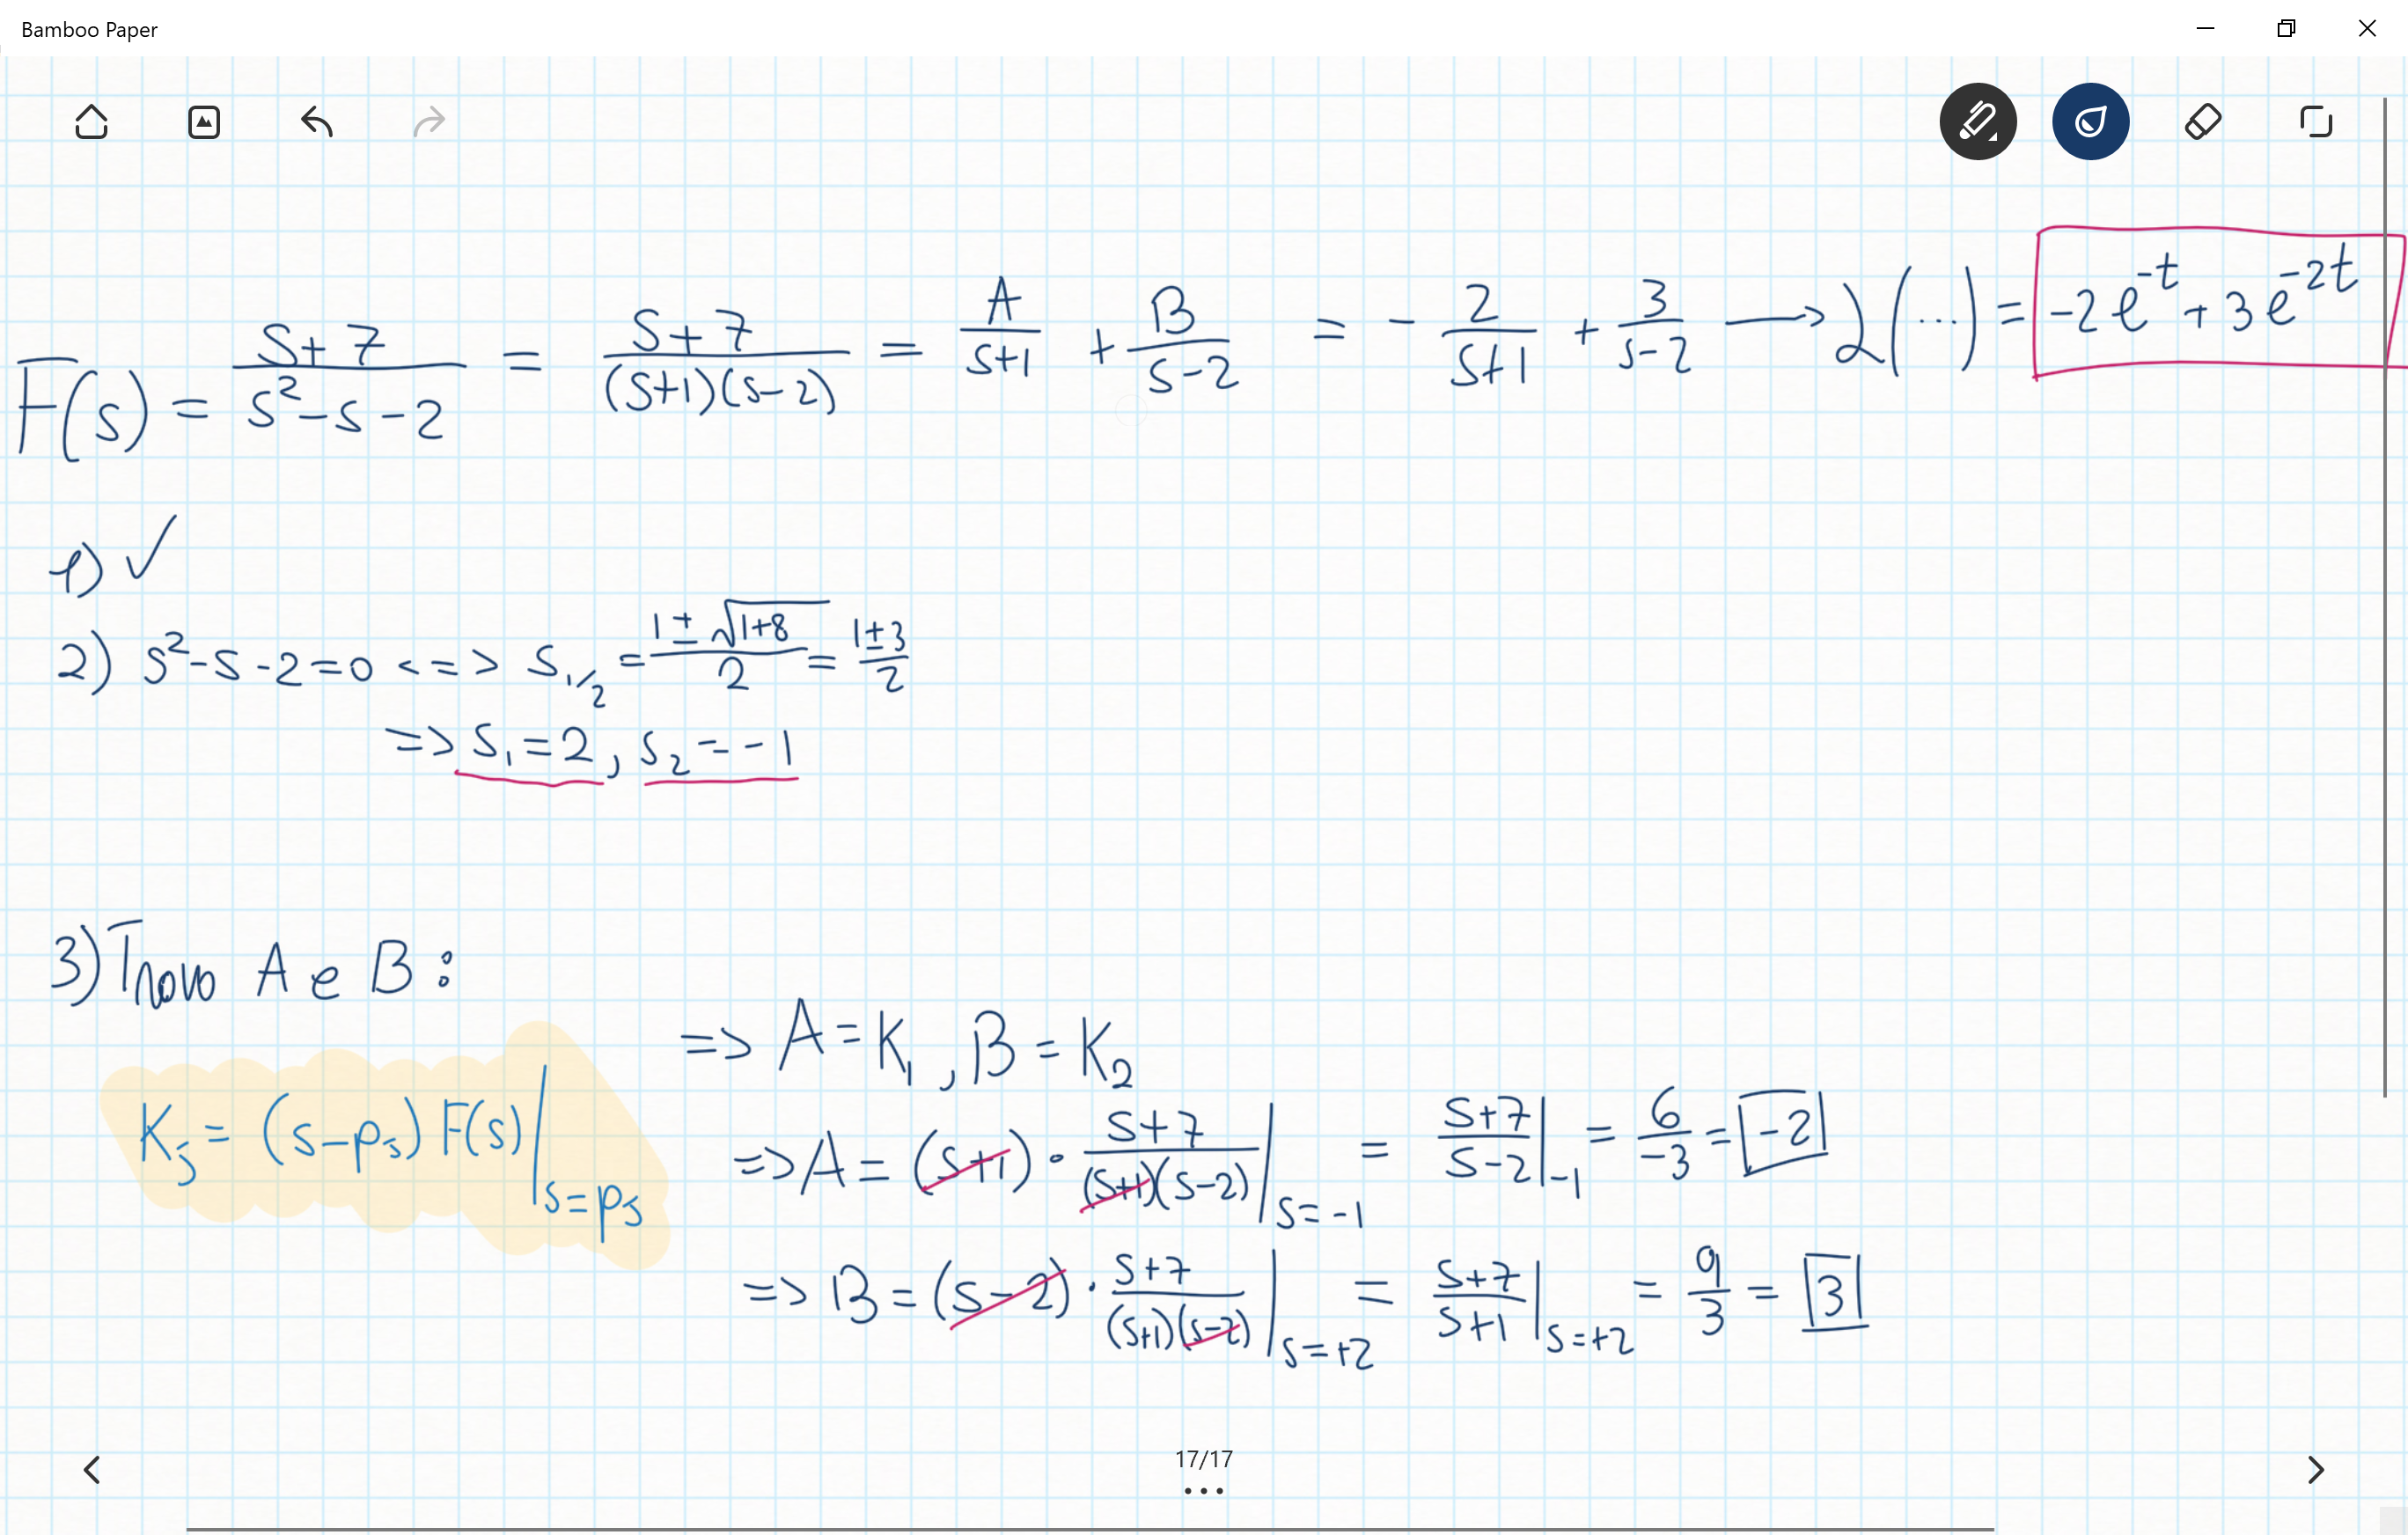 Bamboo Paper
F(s) = (s+7)/(s²-s-2) = (s+7)/((s+1)(s-2)) = A/(s+1) + B/(s-2) = - 2/(s+1) + 3/(s-2) → ℒ(...) = -2e^(-t) + 3e^(-2t)
1) ✓
2) s²-s-2=0 <=> s₁/₂ = (1±√(1+8))/2 = (1±3)/2
=> s₁=2, s₂=-1
3) Trovo A e B:
=> A = K₁, B = K₂
Kⱼ = (s-pⱼ) F(s)|s=pⱼ
=> A = (s+1) · (s+7)/((s+1)(s-2))|s=-1 = (s+7)/(s-2)|-1 = 6/-3 = -2
=> B = (s-2) · (s+7)/((s+1)(s-2))|s=+2 = (s+7)/(s+1)|s=+2 = 9/3 = 3
17/17